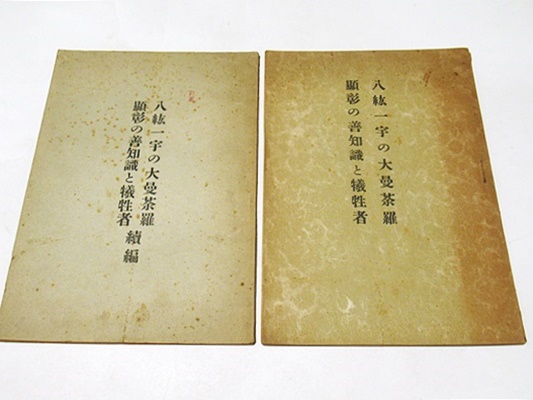 八紘一宇の大曼荼羅
顯彰の善知識と犠牲者 續編
八紘一宇の大曼荼羅
顯彰の善知識と犠牲者